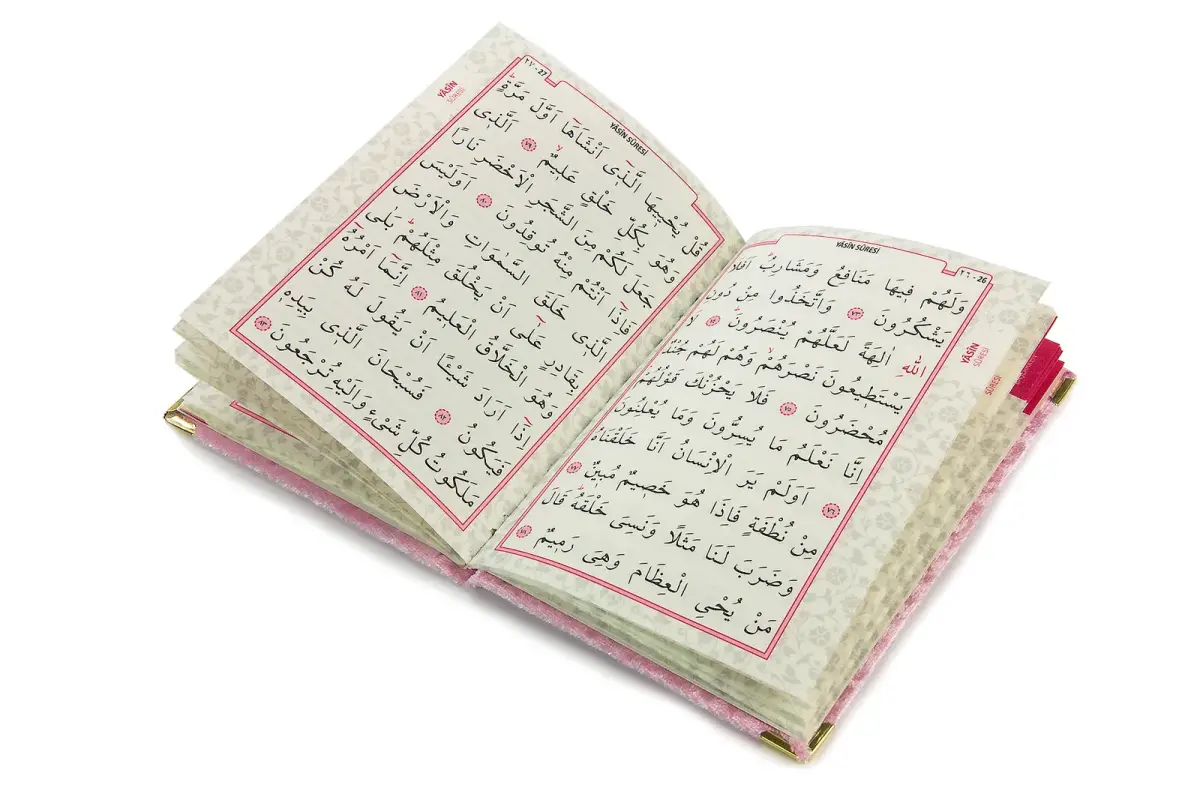 YÂSÎN SÛRESİ
٢٦ - 26
وَلَهُمْ فِيهَا مَنَافِعُ وَمَشَارِبُ اَفَلَا
يَشْكُرُونَ ﴿٧٣﴾ وَاتَّخَذُوا مِنْ دُونِ
اللّٰهِ اٰلِهَةً لَعَلَّهُمْ يُنْصَرُونَ ﴿٧٤﴾ لَا
يَسْتَطِيعُونَ نَصْرَهُمْ وَهُمْ لَهُمْ جُنْدٌ
مُحْضَرُونَ ﴿٧٥﴾ فَلَا يَحْزُنْكَ قَوْلُهُمْ
اِنَّا نَعْلَمُ مَا يُسِرُّونَ وَمَا يُعْلِنُونَ
﴿٧٦﴾ اَوَلَمْ يَرَ الْاِنْسَانُ اَنَّا خَلَقْنَاهُ
مِنْ نُطْفَةٍ فَاِذَا هُوَ خَصِيمٌ مُبِينٌ ﴿٧٧﴾
وَضَرَبَ لَنَا مَثَلًا وَنَسِىَ خَلْقَهُ قَالَ
مَنْ يُحْيِ الْعِظَامَ وَهِىَ رَمِيمٌ ﴿٧٨﴾
YÂSÎN
SÛRESİ
SÛRESİ
٢٧ - 27
YÂSÎN SÛRESİ
قُلْ يُحْيِيهَا الَّذِى اَنْشَاَهَا اَوَّلَ مَرَّةٍ
وَهُوَ بِكُلِّ خَلْقٍ عَلِيمٌ ﴿٧٩﴾ اَلَّذِى
جَعَلَ لَكُمْ مِنَ الشَّجَرِ الْاَخْضَرِ نَارًا
فَاِذَا اَنْتُمْ مِنْهُ تُوقِدُونَ ﴿٨٠﴾ اَوَلَيْسَ
الَّذِى خَلَقَ السَّمٰوَاتِ وَالْاَرْضَ
بِقَادِرٍ عَلٰى اَنْ يَخْلُقَ مِثْلَهُمْ بَلٰى
وَهُوَ الْخَلَّاقُ الْعَلِيمُ ﴿٨١﴾ اِنَّمَا اَمْرُهُ
اِذَا اَرَادَ شَيْئًا اَنْ يَقُولَ لَهُ كُنْ
فَيَكُونُ ﴿٨٢﴾ فَسُبْحَانَ الَّذِى بِيَدِهِ
مَلَكُوتُ كُلِّ شَىْءٍ وَاِلَيْهِ تُرْجَعُونَ ﴿٨٣﴾
YÂSÎN
SÛRESİ